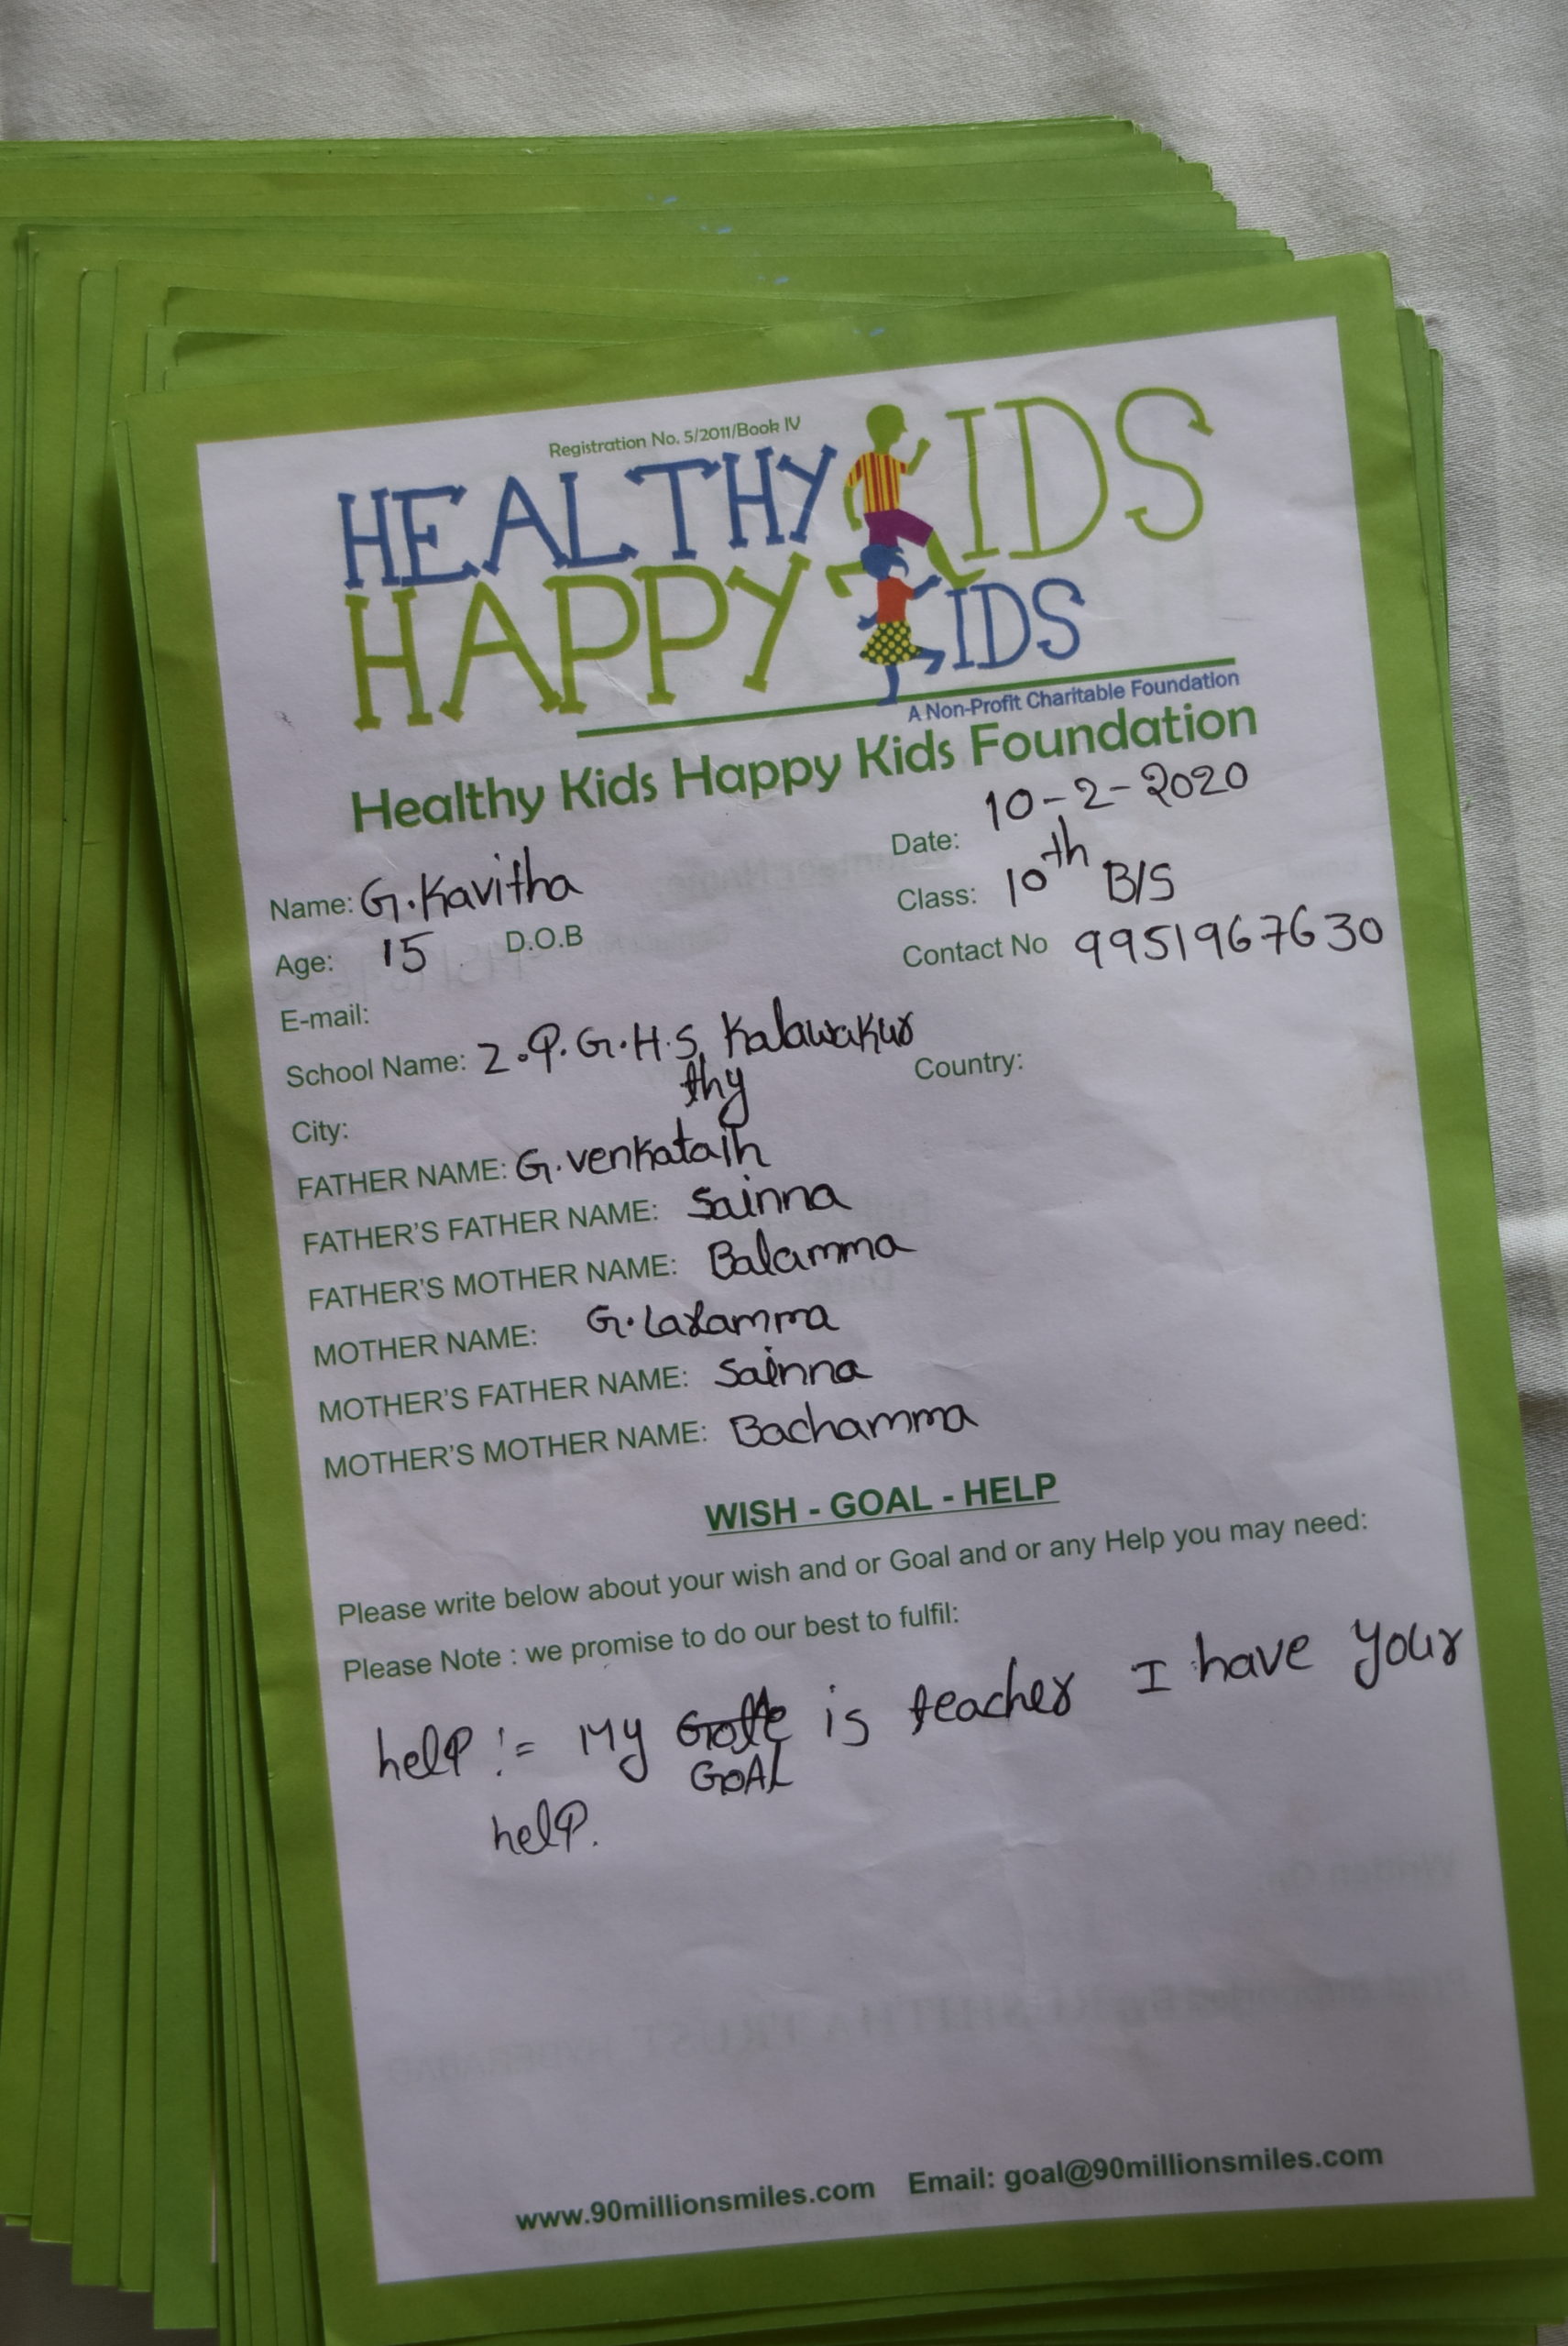 Registration No. 5/2011/Book IV
HEALTHY KIDS
HAPPY KIDS
A Non-Profit Charitable Foundation
Healthy Kids Happy Kids Foundation
Date: 10-2-2020
Name: G.Kavitha
Class: 10th B/S
Age: 15 D.O.B
Contact No 9951967630
E-mail:
School Name: Z.P.G.H.S, Kalawakur
thy
Country:
City:
FATHER NAME: G.venkataih
FATHER'S FATHER NAME: Sainna
FATHER'S MOTHER NAME: Balamma
MOTHER NAME: G.Laxamma
MOTHER'S FATHER NAME: Sainna
MOTHER'S MOTHER NAME: Bachamma
WISH - GOAL - HELP
Please write below about your wish and or Goal and or any Help you may need:
Please Note : we promise to do our best to fulfil:
help := My is teacher I have your
GOAL
help.
www.90millionsmiles.com Email: goal@90millionsmiles.com